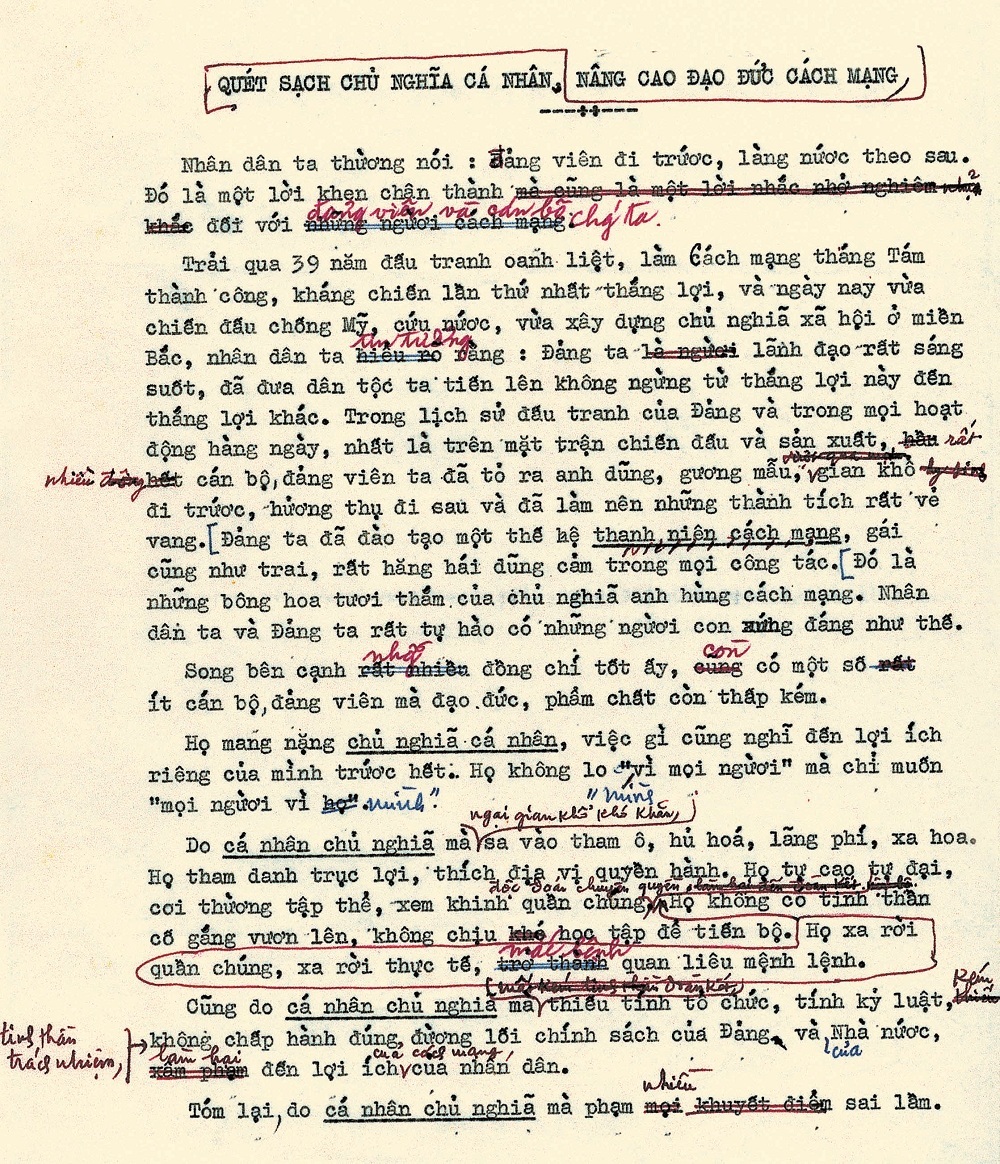 QUÉT SẠCH CHỦ NGHĨA CÁ NHÂN, NÂNG CAO ĐẠO ĐỨC CÁCH MẠNG
Nhân dân ta thường nói : Đảng viên đi trước, làng nước theo sau.
Đó là một lời khen chân thành mà cũng là một lời nhắc nhở nghiêm
đảng viên và cán bộ chúng ta.
khắc đối với những người cách mạng.
Trải qua 39 năm đấu tranh oanh liệt, làm Cách mạng tháng Tám
thành công, kháng chiến lần thứ nhất thắng lợi, và ngày nay vừa
chiến đấu chống Mỹ, cứu nước, vừa xây dựng chủ nghiã xã hội ở miền
tin tưởng
Bắc, nhân dân ta hiểu rõ rằng : Đảng ta là người lãnh đạo rất sáng
suốt, đã đưa dân tộc ta tiến lên không ngừng từ thắng lợi này đến
thắng lợi khác. Trong lịch sử đấu tranh của Đảng và trong mọi hoạt
động hàng ngày, nhất là trên mặt trận chiến đấu và sản xuất, hầu rất
nhiều hết cán bộ, đảng viên ta đã tỏ ra anh dũng, gương mẫu, gian khổ
đi trước, hưởng thụ đi sau và đã làm nên những thành tích rất vẻ
vang. [Đảng ta đã đào tạo một thế hệ thanh niên cách mạng, gái
cũng như trai, rất hăng hái dũng cảm trong mọi công tác. [Đó là
những bông hoa tươi thắm của chủ nghiã anh hùng cách mạng. Nhân
dân ta và Đảng ta rất tự hào có những người con xứng đáng như thế.
những còn
Song bên cạnh rất nhiều đồng chí tốt ấy, cũng có một số rất
ít cán bộ, đảng viên mà đạo đức, phẩm chất còn thấp kém.
Họ mang nặng chủ nghiã cá nhân, việc gì cũng nghĩ đến lợi ích
riêng của mình trước hết. Họ không lo "vì mọi người" mà chỉ muốn
"mọi người vì họ". mình".
"mình
ngại gian khổ khó khăn,
Do cá nhân chủ nghiã mà sa vào tham ô, hủ hoá, lãng phí, xa hoa.
Họ tham danh trục lợi, thích địa vị quyền hành. Họ tự cao tự đại,
độc đoán chuyên quyền,
coi thường tập thể, xem khinh quần chúng. Họ không có tinh thần
cố gắng vươn lên, không chịu khó học tập để tiến bộ. Họ xa rời
mắc bệnh
quần chúng, xa rời thực tế, trở thành quan liêu mệnh lệnh.
Cũng do cá nhân chủ nghiã mà thiếu tính tổ chức, tính kỷ luật, kém
tinh thần
trách nhiệm,
không chấp hành đúng đường lối chính sách của Đảng, và Nhà nước,
của
làm hại của cách mạng,
xâm phạm đến lợi ích của nhân dân.
nhiều
Tóm lại, do cá nhân chủ nghiã mà phạm mọi khuyết điểm sai lầm.